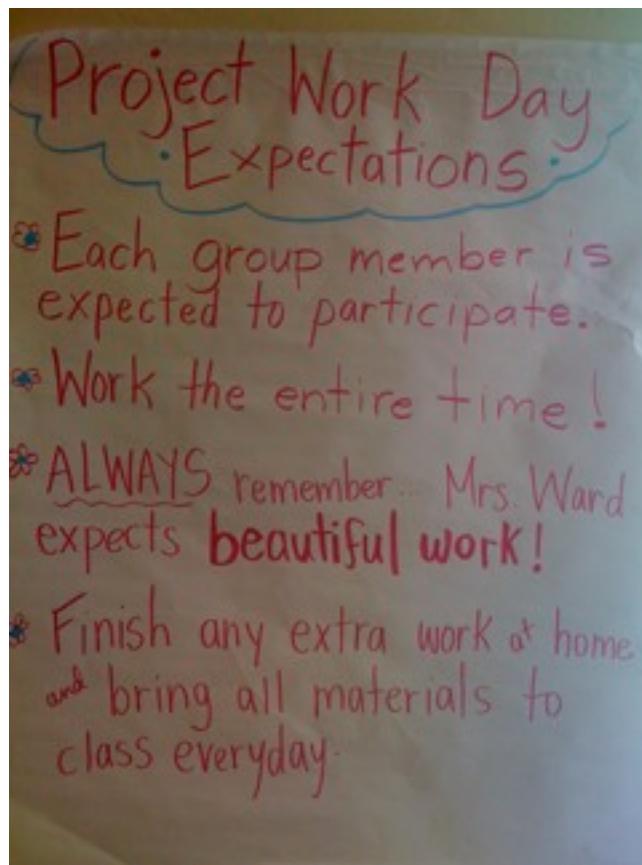 Project Work Day
• Expectations •
Each group member is
expected to participate.
Work the entire time!
ALWAYS remember... Mrs. Ward
expects beautiful work!
Finish any extra work at home
and bring all materials to
class everyday.